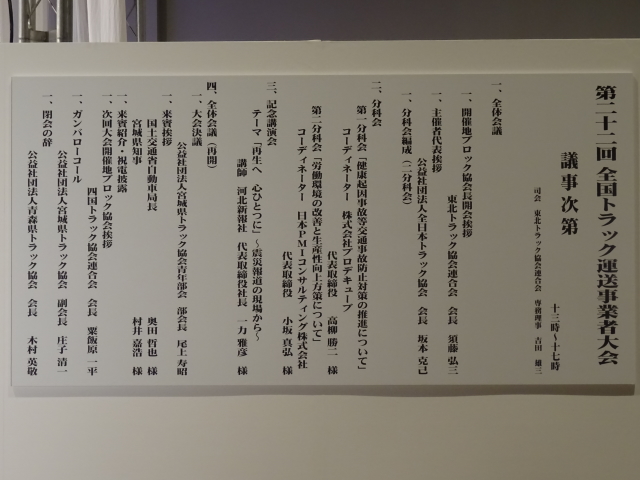 第二十二回 全国トラック運送事業者大会
議事次第
十三時～十七時
司会 東北トラック協会連合会 専務理事 吉田 雄三
一、全体会議
一、開催地ブロック協会長開会挨拶
東北トラック協会連合会 会長 須藤 弘三
一、主催者代表挨拶
公益社団法人全日本トラック協会 会長 坂本 克己
一、分科会編成（二分科会）
二、分科会
第一分科会「健康起因事故等交通事故防止対策の推進について」
コーディネーター 株式会社プロデキューブ
代表取締役 高柳 勝二 様
第二分科会「労働環境の改善と生産性向上方策について」
コーディネーター 日本PMIコンサルティング株式会社
代表取締役 小坂 真弘 様
三、記念講演会
テーマ「再生へ 心ひとつに」～震災報道の現場から～
講師 河北新報社 代表取締役社長 一力 雅彦 様
四、全体会議（再開）
一、大会決議
公益社団法人宮城県トラック協会青年部会 部会長 尾上 寿昭
一、来賓挨拶
国土交通省自動車局長 奥田 哲也 様
宮城県知事 村井 嘉浩 様
一、来賓紹介・祝電披露
一、次回大会開催地ブロック協会挨拶
四国トラック協会連合会 会長 粟飯原 一平
一、ガンバローコール
公益社団法人宮城県トラック協会 副会長 庄子 清一
一、閉会の辞
公益社団法人青森県トラック協会 会長 木村 英敬